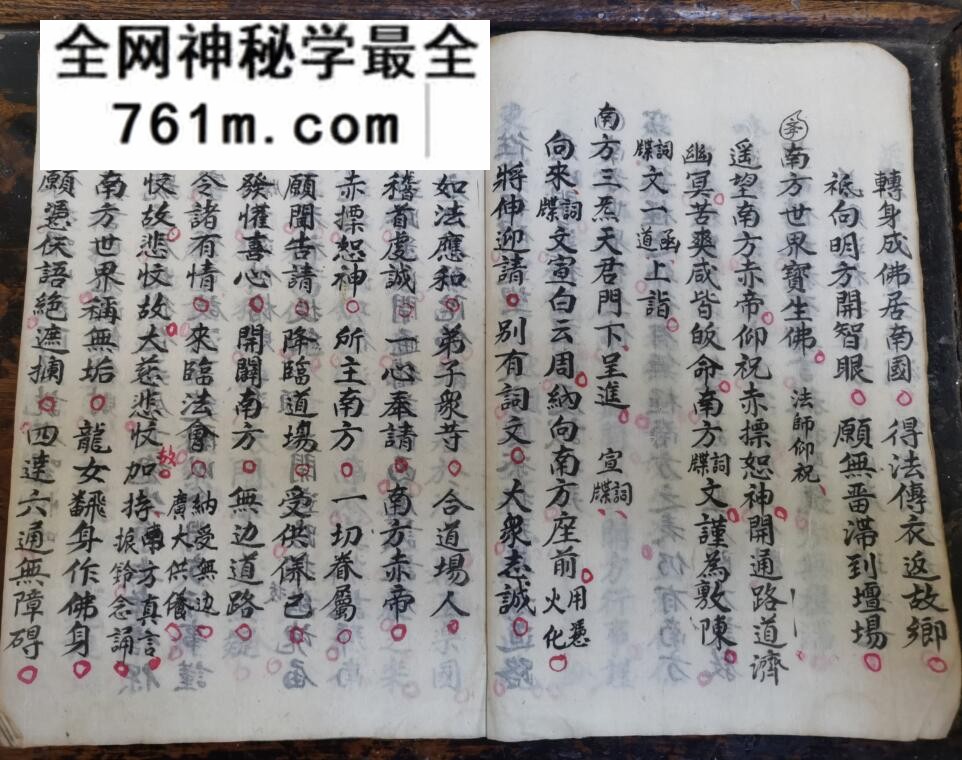 全网神秘学最全
761m.com
轉身成佛居南國 得法傳衣返故鄉
祗向明方開智眼 願無畱滞到壇塲
南方世界寶生佛 法師仰祝
遥望南方赤帝仰祝赤摽恕神開通路道濟
幽冥苦爽咸皆皈命南方詞牒文謹為敷陳
詞牒文一函道上詣
南方三炁天君門下呈進 宣詞牒
向來詞牒文宣白云周納向南方座前用憑火化
將伸迎請 别有詞文 大衆志誠
如法應和 弟子衆䒭 合道塲人
稽首虔誠 一心奉請 南方赤帝
赤摽恕神 所主南方 一切眷屬
願聞告請 降臨道塲 受供養已
發懽喜心 開闢南方 無边道路
令諸有情 來臨法會 納受無边廣大供儀
忟故悲忟故大慈悲忟加持 南方真言 振鈴念誦
南方世界稱無垢 龍女飜身作佛身
願憑伕語絶遮攔 四達六通無障碍